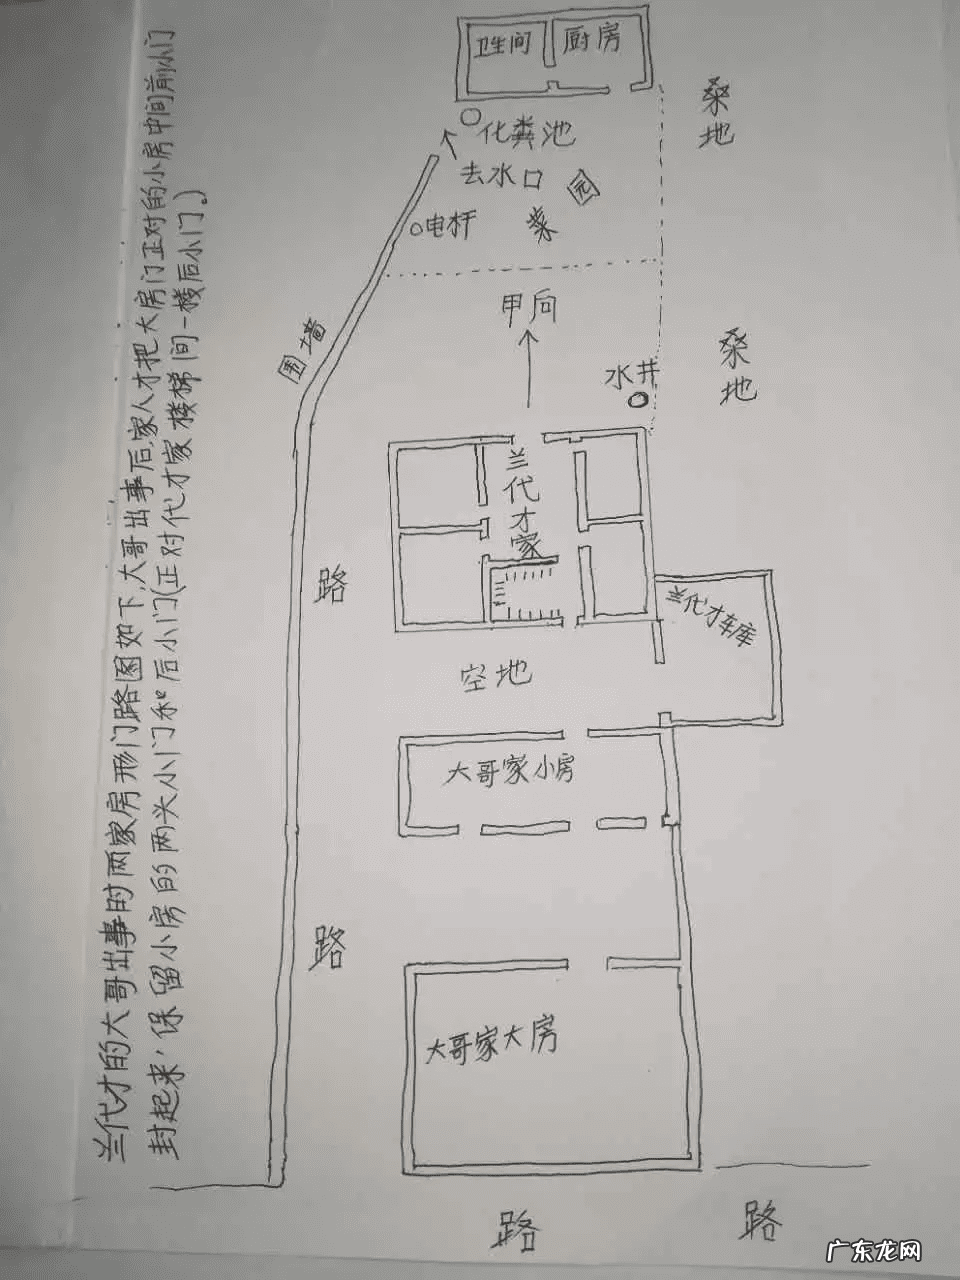 卫生间
厨房
桑地
化粪池
去水口
菜园
电杆
甲向
围墙
水井
桑地
兰代才家
路
兰代才车库
空地
大哥家小房
路
大哥家大房
路
路
兰代才的大哥出事时两家房形门路图如下,大哥出事后,家人才把大房门正对的小房中间前小门
封起来,保留小房的两头小门和后小门(正对代才家楼梯间一楼后小门。)
广东龙网